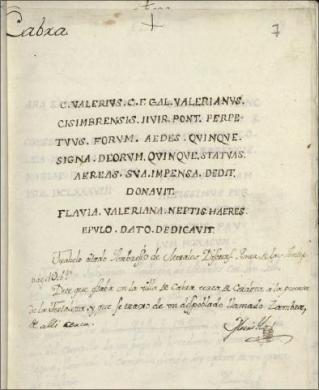 Cabra.
7
C. VALERIUS. C. F. GAL. VALERIANVS.
CISIMBRENSIS. IIVIR. PONT. PERPE
TVVS. FORVM. AEDES. QUINQVE.
SIGNA. DEORVM. QUINQVE. STATVAS.
AEREAS. SVA. IMPENSA. DEDIT.
DONAVIT.
FLAVIA. VALERIANA. NEPTIS. HAERES.
EPVLO. DATO. DEDICAVIT.
Ambrosio de Morales
Dice que estaba en la villa de Cabra cerca de
de la Fortaleza, y que se traxo de un despoblado llamado Zambra,
alli cerca.